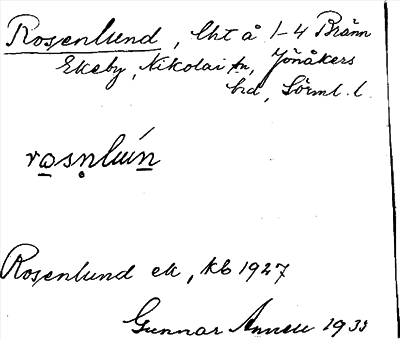 Rosenlund, lht å 1-4 Bränn
Ekeby, Nikolai sn, Jönåkers
hd, Sörml. l.
rosnlún
Rosenlund ek, kb 1927
Gunnar 1933